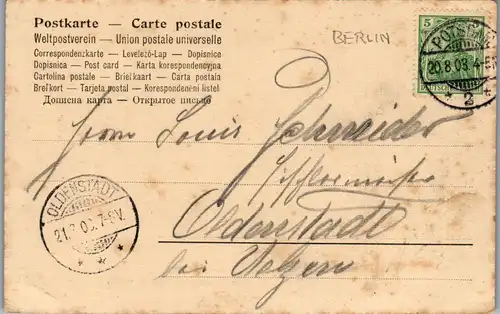 Postkarte — Carte postale
Weltpostverein — Union postale universelle
Correspondenzkarte — Levelező-Lap — Dopisnice
Dopisnica — Post card — Karta korespondencyjna
Cartolina postale — Briefkaart — Carta postala
Brefkort — Tarjeta postal — Korespondenční listek
Дописна карта — Открытое письмо
BERLIN
5
POTSDAM
20.8.03.4-5N.
2
Herrn Louis Schneider
Oldenstadt
bei Uelzen
OLDENSTADT
21.8.03.7-8V.